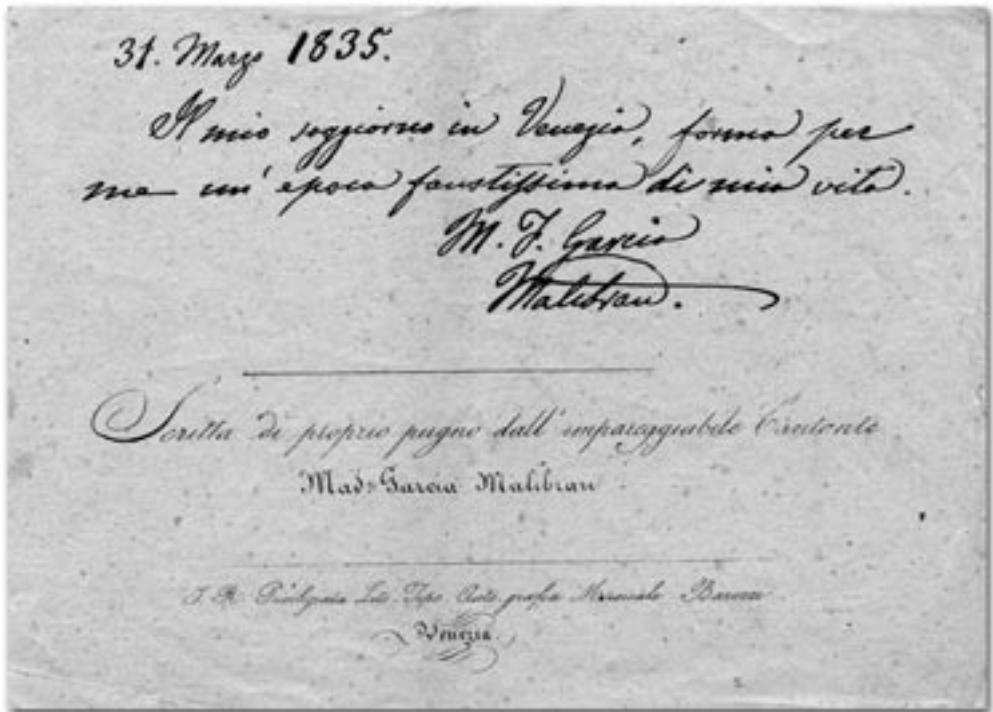 31. Marzo 1835.
Il mio soggiorno in Venezia, forma per
me un' epoca faustissima di mia vita.
M. F. Garcia
Malibran.
Scritta di proprio pugno dall' impareggiabile Cantante
Mad.ª Garcia Malibran
I. R. Privilegiata Lito. Tipo.
Venezia